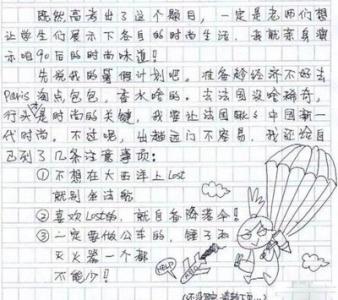 既然高考出了这个题目，一定是老师们想
让学生们展示下各自的时尚生活，我就亲身演
示吧90后的时尚味道！
先说我的暑假计划吧。准备趁经济不好去
Paris淘点包包，香水啥的。去法国没啥稀奇，
行头是时尚的关键，我要让法国瞅瞅中国新一
代时尚。不过呢，出趟远门不容易，我还给自
己列了几条注意事项：
①不想在大西洋上Lost
就别坐法航
②喜欢Lost的，就自备降落伞！
③一定要做公车的，锤子和
灭火器一个都
不能少！
HELP